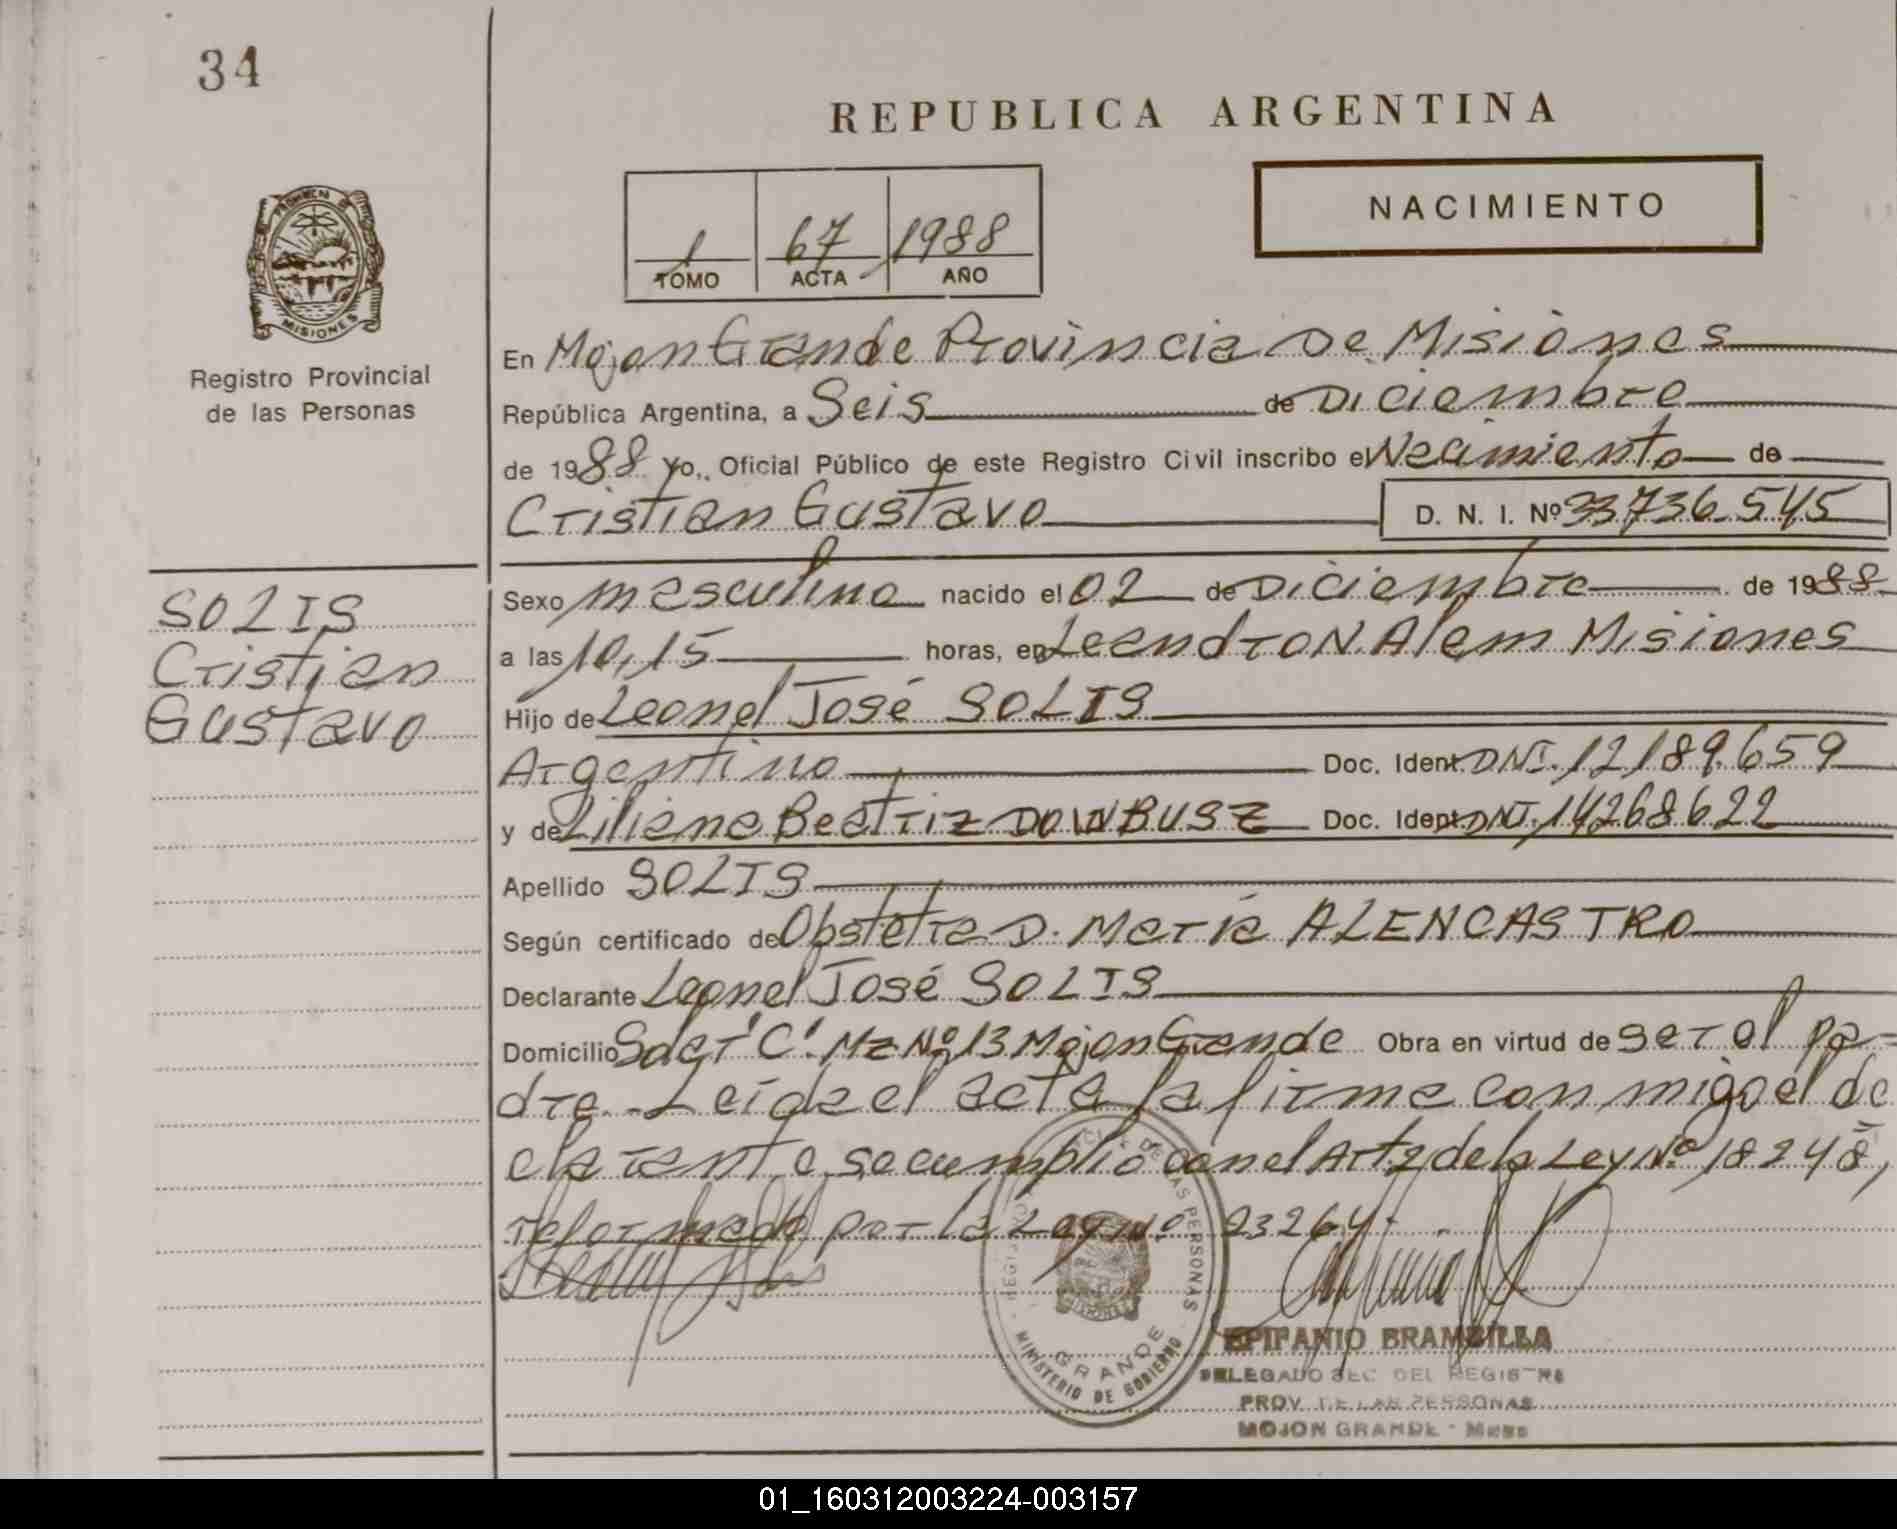 34
REPUBLICA ARGENTINA
NACIMIENTO
1 67 1988
TOMO ACTA AÑO
MISIONES
Registro Provincial
de las Personas
En Mojon Grande Provincia De Misiones
República Argentina, a Seis de Diciembre
de 1988 yo, Oficial Público de este Registro Civil inscribo el Nacimiento de
Cristian Gustavo D. N. I. Nº 33736.545
SOLIS
Cristian
Gustavo
Sexo masculino nacido el 02 de Diciembre de 1988
a las 10,15 horas, en Leandro N. Alem Misiones
Hijo de Leonel José SOLIS
Argentino Doc. Ident. DNI. 12189.659
y de Liliana Beatriz Doc. Ident. DNI. 14268622
Apellido SOLIS
Según certificado de Obstetra D. María ALENCASTRO
Declarante Leonel José SOLIS
Domicilio Sder "C" Mz Nº 13 Mojon Grande Obra en virtud de ser el pa-
dre.- Leída el acta la firma con migo el de
clarante se cumplio con el Art 2 de la Ley Nº 18248,
reformado por la Ley Nº 23264.-
DE LAS PERSONAS
GRANDE
MINISTERIO DE GOBIERNO
EPIFANIO BRAMBILLA
DELEGADO SEC DEL REGISTRO
PROV. DE LAS PERSONAS
MOJON GRANDE - Mnes
01_160312003224-003157